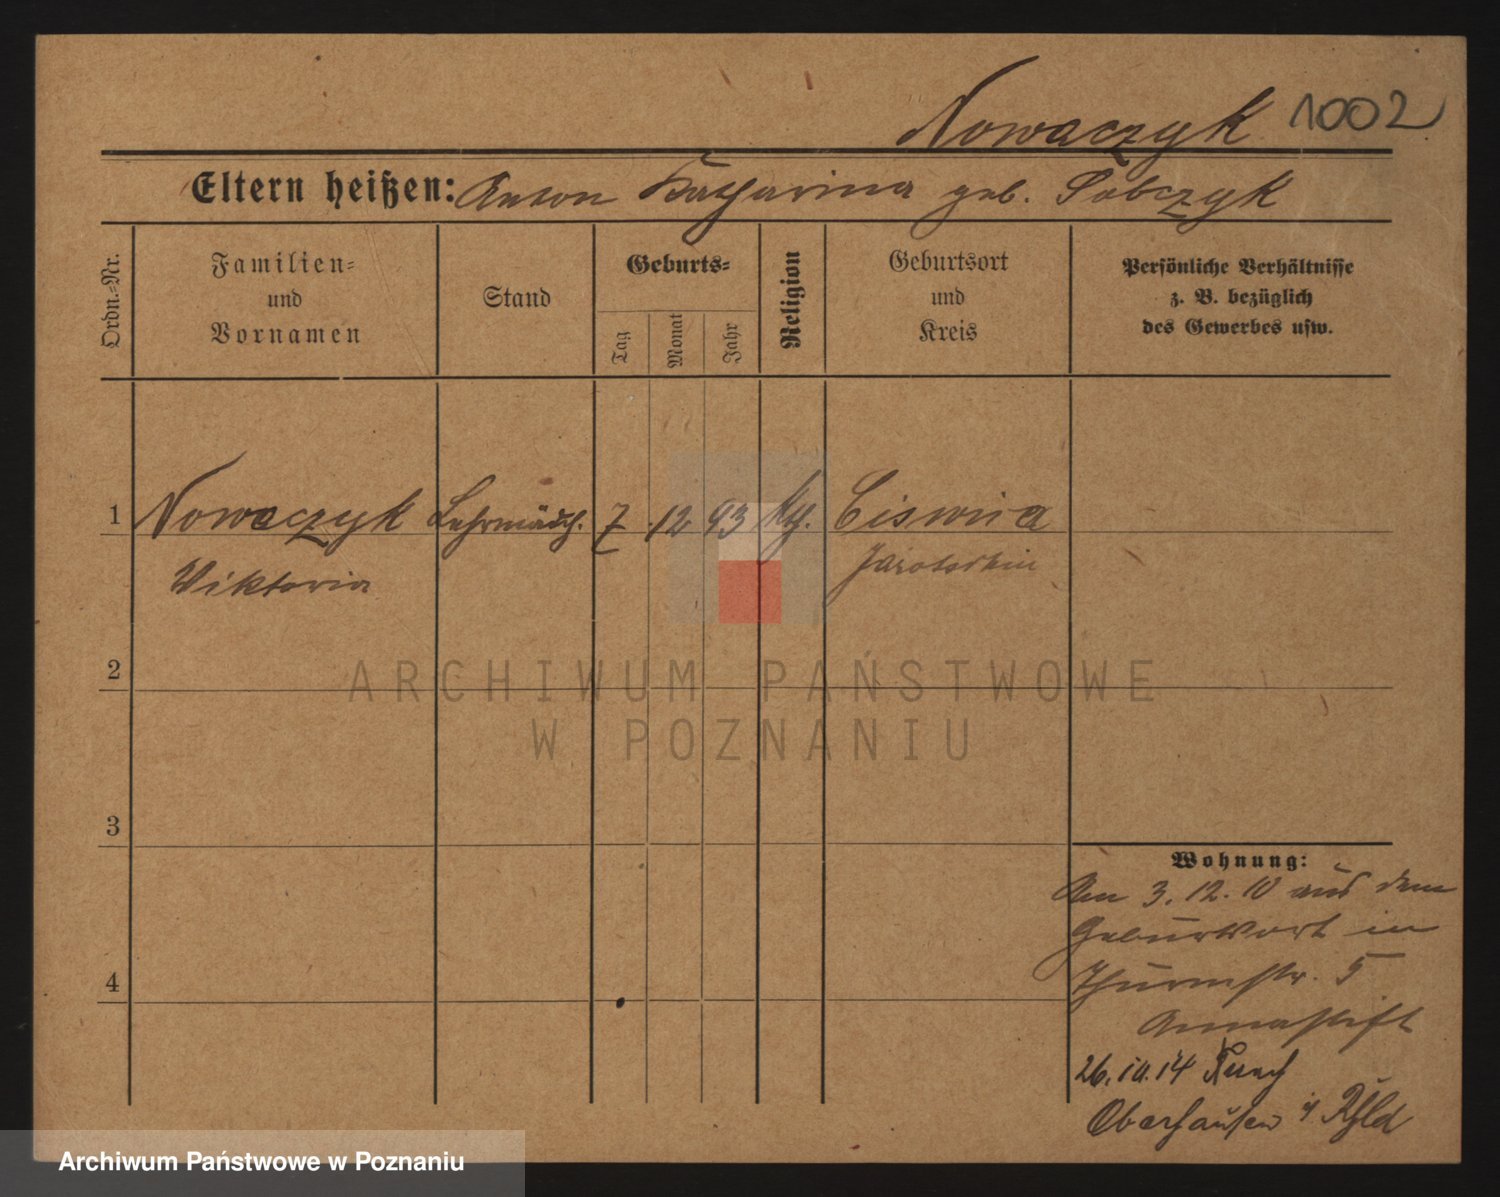 Nowaczyk 1002
Eltern heißen: Anton Katharina geb. Sobczyk
Ordn.-Nr.
Familien-
und
Vornamen
Stand
Geburts-
Tag
Monat
Jahr
Religion
Geburtsort
und
Kreis
Persönliche Verhältnisse
z. B. bezüglich
des Gewerbes usw.
1 Nowaczyk Lehrmädch. 7 12 93 kth. Ciswica
Viktoria Jarotschin
2
ARCHIWUM PAŃSTWOWE
W POZNANIU
3
Wohnung:
Am 3.12.10 aus dem
Geburtsort in
Thurmstr. 5
Annastift
26.10.14 nach
Oberhausen i/ Rhld
4
Archiwum Państwowe w Poznaniu